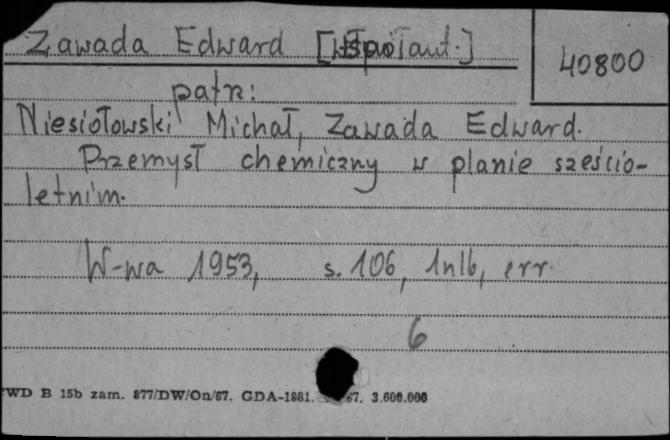 Zawada Edward [współaut.]
40800
patrz:
Niesiołowski Michał, Zawada Edward.
Przemysł chemiczny w planie sześcio-
letnim.
W-wa 1953, s. 106, 1nlb, err.
6
WD B 15b zam. 877/DW/On/67. GDA-1881. 67. 3.600.000